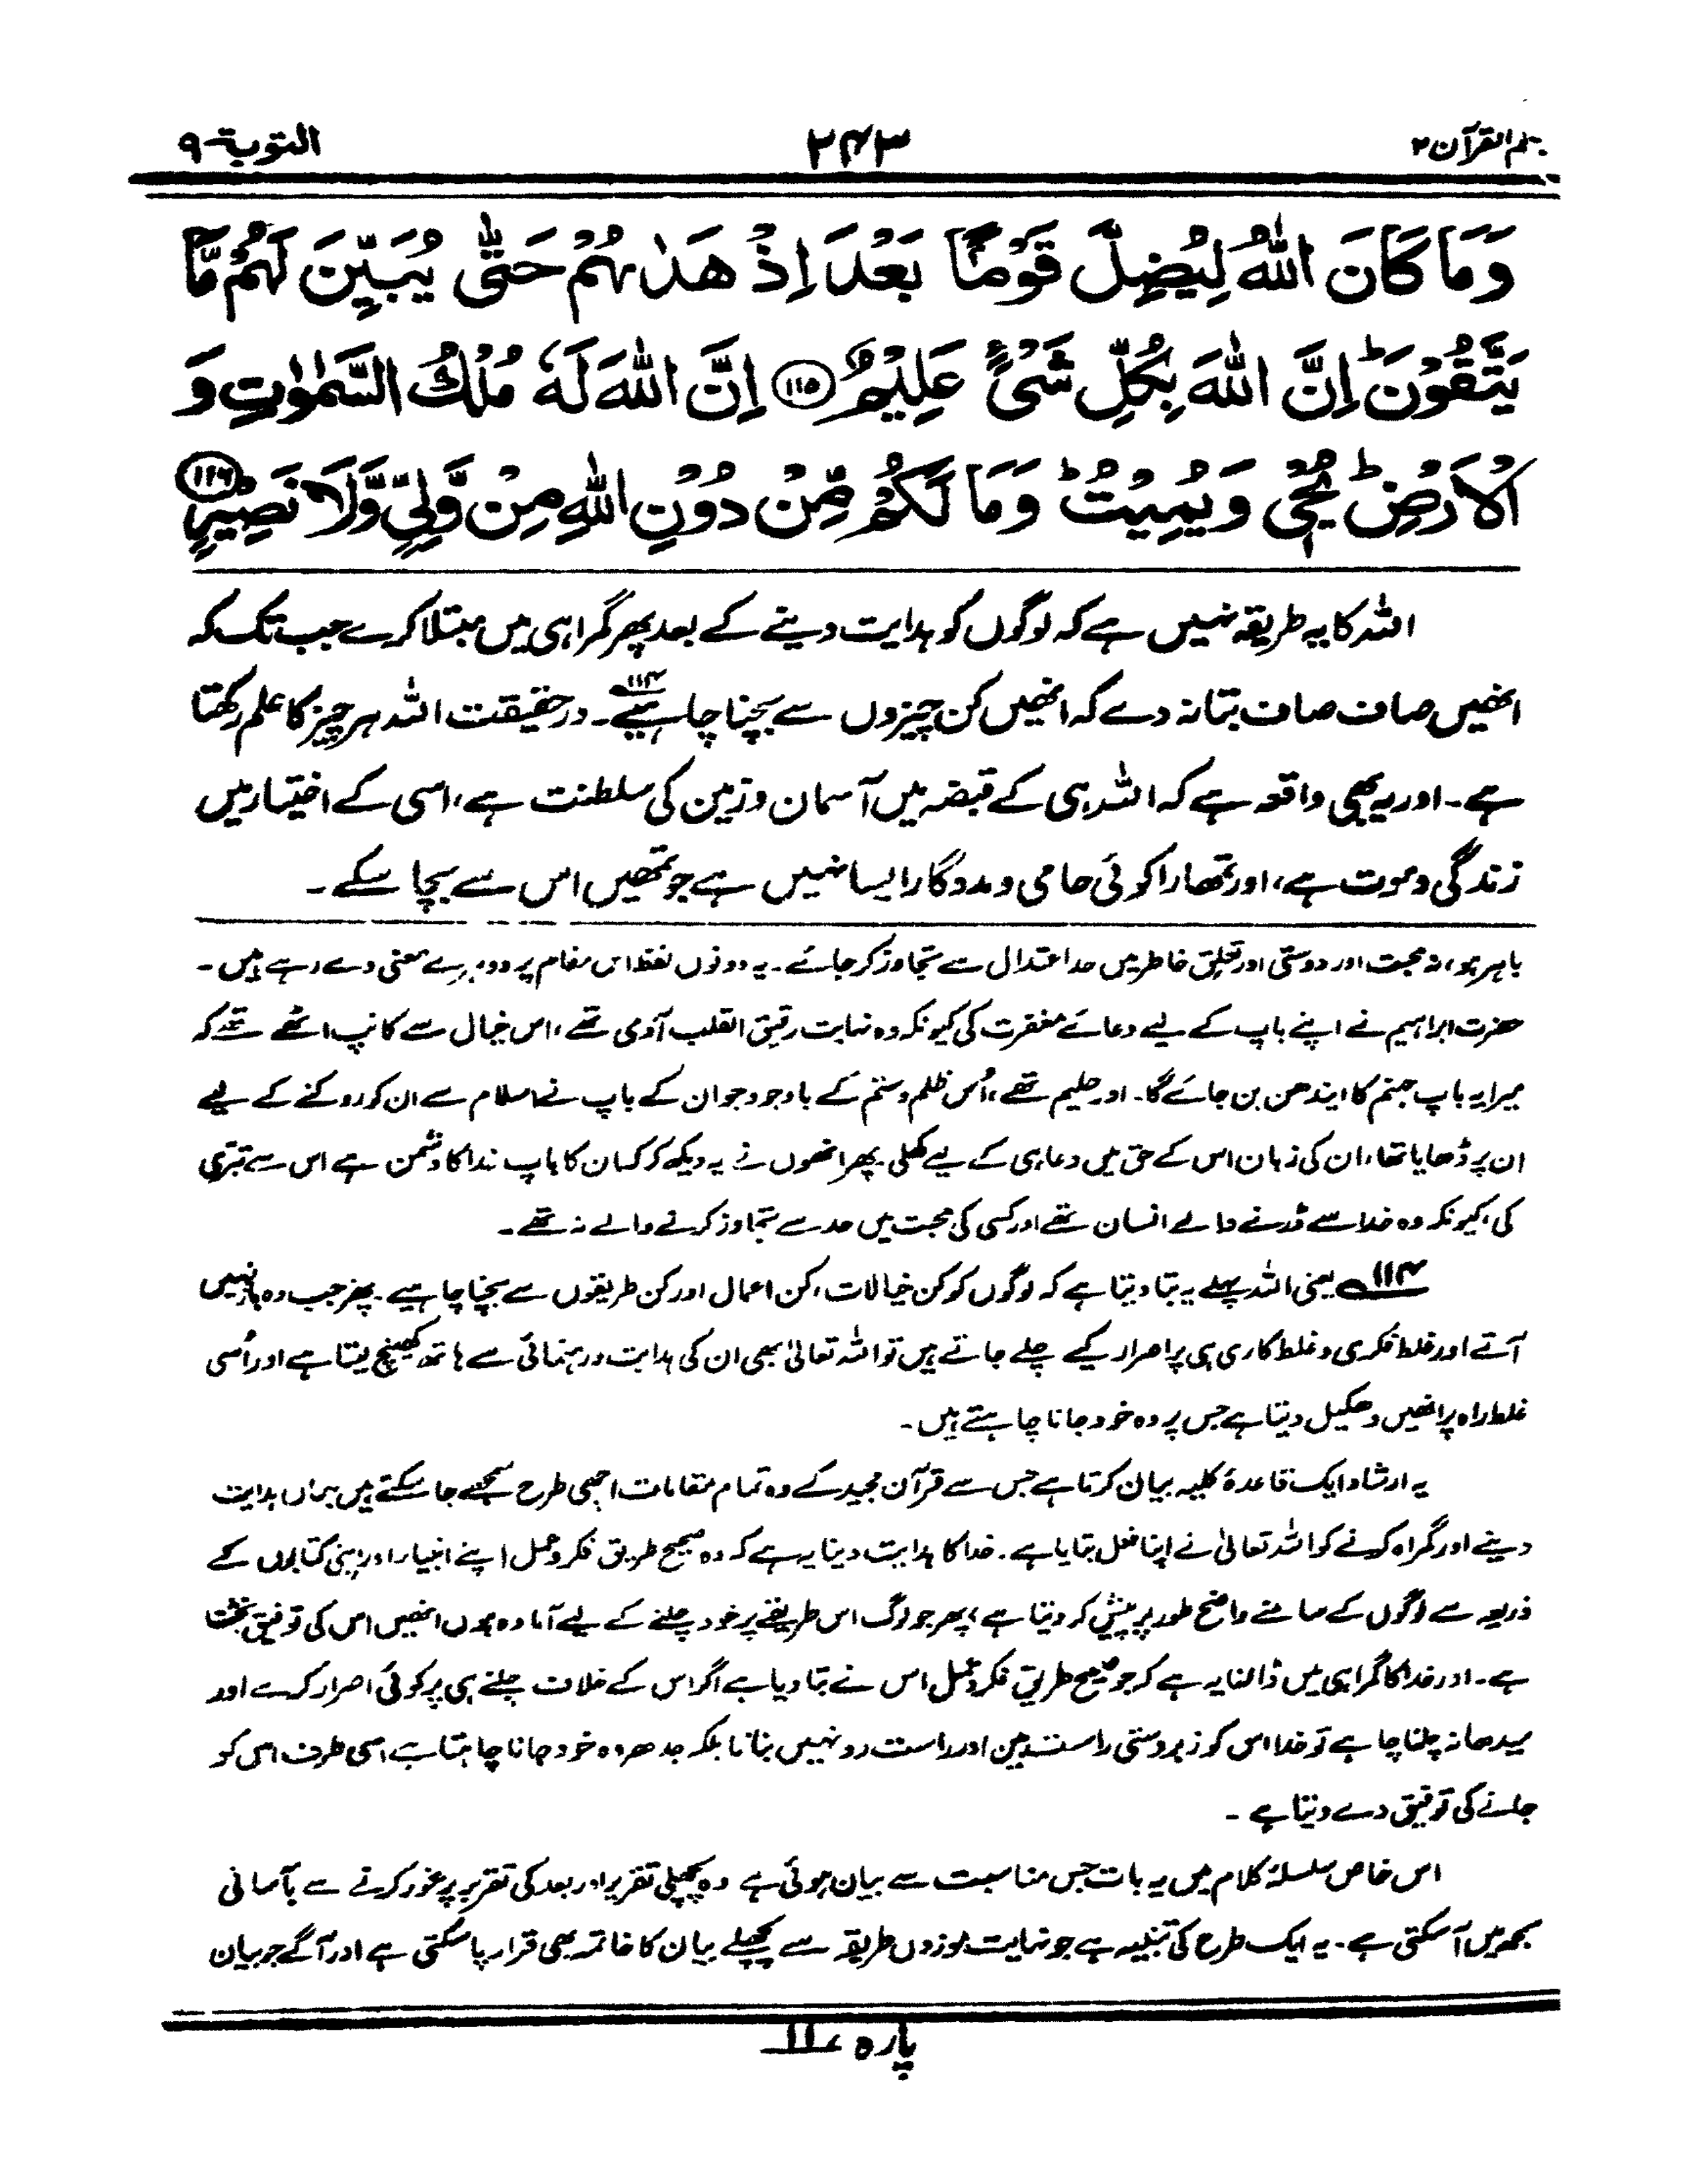 تفہیم القرآن ۲
۲۴۳
التوبۃ ۹
وَمَا كَانَ اللّٰهُ لِيُضِلَّ قَوْمًۢا بَعْدَ اِذْ هَدٰىهُمْ حَتّٰى يُبَيِّنَ لَهُمْ مَّا
يَتَّقُوْنَ ؕ اِنَّ اللّٰهَ بِكُلِّ شَىْءٍ عَلِيْمٌ ﴿۱۱۵﴾ اِنَّ اللّٰهَ لَهٗ مُلْكُ السَّمٰوٰتِ وَ
الْاَرْضِ ؕ يُحْىٖ وَيُمِيْتُ ؕ وَمَا لَكُمْ مِّنْ دُوْنِ اللّٰهِ مِنْ وَّلِىٍّ وَّلَا نَصِيْرٍ ﴿۱۱۶﴾
اللہ کا یہ طریقہ نہیں ہے کہ لوگوں کو ہدایت دینے کے بعد پھر گمراہی میں مبتلا کرے جب تک کہ
انھیں صاف صاف بتا نہ دے کہ انھیں کن چیزوں سے بچنا چاہیے۱۱۴۔ درحقیقت اللہ ہر چیز کا علم رکھتا
ہے۔ اور یہ بھی واقعہ ہے کہ اللہ ہی کے قبضہ میں آسمان و زمین کی سلطنت ہے، اسی کے اختیار میں
زندگی و موت ہے، اور تمھارا کوئی حامی و مددگار ایسا نہیں ہے جو تمھیں اس سے بچا سکے۔
باہر ہو، نہ محبت اور دوستی اور تعلق خاطر میں حد اعتدال سے تجاوز کر جائے۔ یہ دونوں لفظ اس مقام پر دوہرے معنی دے رہے ہیں۔
حضرت ابراہیم نے اپنے باپ کے لیے دعائے مغفرت کی کیونکہ وہ نہایت رقیق القلب آدمی تھے، اس خیال سے کانپ اٹھے تھے کہ
میرا یہ باپ جہنم کا ایندھن بن جائے گا۔ اور حلیم تھے، اُس ظلم و ستم کے باوجود جو ان کے باپ نے اسلام سے ان کو روکنے کے لیے
ان پر ڈھایا تھا، ان کی زبان اس کے حق میں دعا ہی کے لیے کھلی۔ پھر انھوں نے یہ دیکھ کر کہ ان کا باپ خدا کا دشمن ہے اس سے تبرّی
کی، کیونکہ وہ خدا سے ڈرنے والے انسان تھے اور کسی کی محبت میں حد سے تجاوز کرنے والے نہ تھے۔
۱۱۴ یعنی اللہ پہلے یہ بتا دیتا ہے کہ لوگوں کو کن خیالات، کن اعمال اور کن طریقوں سے بچنا چاہیے۔ پھر جب وہ باز نہیں
آتے اور غلط فکری و غلط کاری ہی پر اصرار کیے چلے جاتے ہیں تو اللہ تعالیٰ بھی ان کی ہدایت و رہنمائی سے ہاتھ کھینچ لیتا ہے اور اُسی
غلط راہ پر انھیں دھکیل دیتا ہے جس پر وہ خود جانا چاہتے ہیں۔
یہ ارشاد ایک قاعدۂ کلیہ بیان کرتا ہے جس سے قرآن مجید کے وہ تمام مقامات اچھی طرح سمجھے جا سکتے ہیں جہاں ہدایت
دینے اور گمراہ کرنے کو اللہ تعالیٰ نے اپنا فعل بتایا ہے۔ خدا کا ہدایت دینا یہ ہے کہ وہ صحیح طریق فکر و عمل اپنے انبیاء اور اپنی کتابوں کے
ذریعہ سے لوگوں کے سامنے واضح طور پر پیش کر دیتا ہے، پھر جو لوگ اس طریقے پر خود چلنے کے لیے آمادہ ہوں انھیں اس کی توفیق بخشتا
ہے۔ اور خدا کا گمراہی میں ڈالنا یہ ہے کہ جو صحیح طریق فکر و عمل اس نے بتا دیا ہے اگر اس کے خلاف چلنے ہی پر کوئی اصرار کرے اور
سیدھا نہ چلنا چاہے تو خدا اس کو زبردستی راست بین اور راست رو نہیں بناتا بلکہ جدھر وہ خود جانا چاہتا ہے اسی طرف اس کو
جانے کی توفیق دے دیتا ہے۔
اس خاص سلسلۂ کلام میں یہ بات جس مناسبت سے بیان ہوئی ہے وہ پچھلی تقریر اور بعد کی تقریر پر غور کرنے سے بآسانی
سمجھ میں آ سکتی ہے۔ یہ ایک طرح کی تنبیہ ہے جو نہایت موزوں طریقہ سے پچھلے بیان کا خاتمہ بھی قرار پا سکتی ہے اور آگے جو بیان
پارہ ۱۱